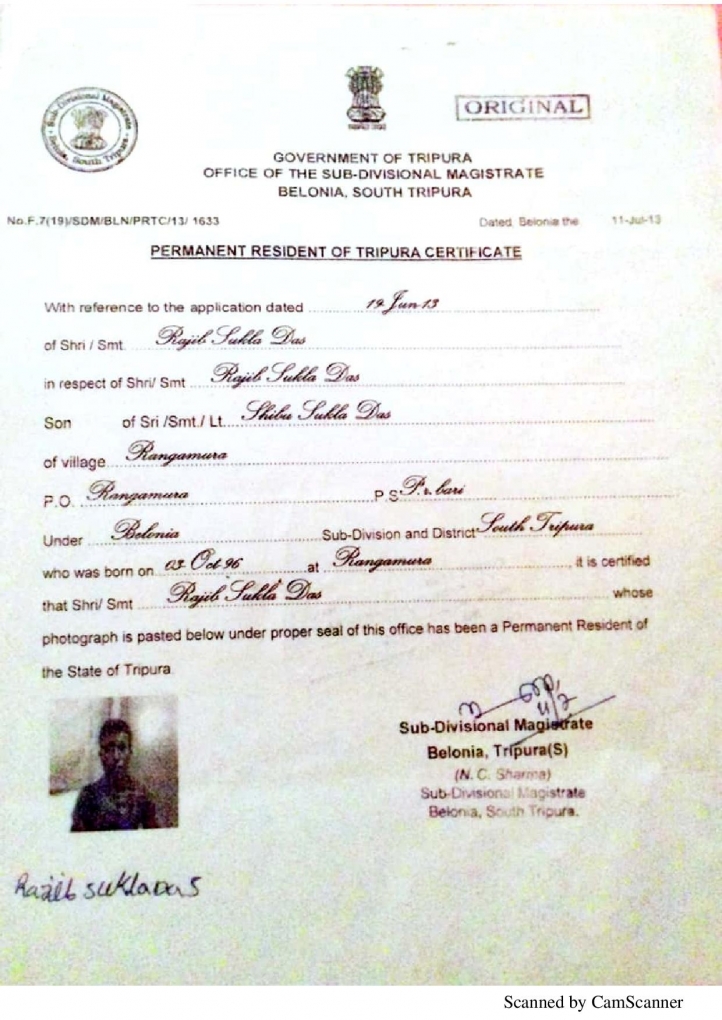 Sub-Divisional Magistrate
Belonia, South Tripura
ORIGINAL
GOVERNMENT OF TRIPURA
OFFICE OF THE SUB-DIVISIONAL MAGISTRATE
BELONIA, SOUTH TRIPURA
No.F.7(19)/SDM/BLN/PRTC/13/ 1633 Dated, Belonia the 11-Jul-13
PERMANENT RESIDENT OF TRIPURA CERTIFICATE
With reference to the application dated 19-Jun-13
of Shri / Smt. Rajib Sukla Das
in respect of Shri/ Smt Rajib Sukla Das
Son of Sri /Smt./ Lt. Shibu Sukla Das
of village Rangamura
P.O. Rangamura P.S P.r. bari
Under Belonia Sub-Division and District South Tripura
who was born on 03-Oct-96 at Rangamura, it is certified
that Shri/ Smt Rajib Sukla Das whose
photograph is pasted below under proper seal of this office has been a Permanent Resident of
the State of Tripura.
Sub-Divisional Magistrate
Belonia, Tripura(S)
(N. C. Sharma)
Sub-Divisional Magistrate
Belonia, South Tripura.
Rajib SuklaDas
Scanned by CamScanner